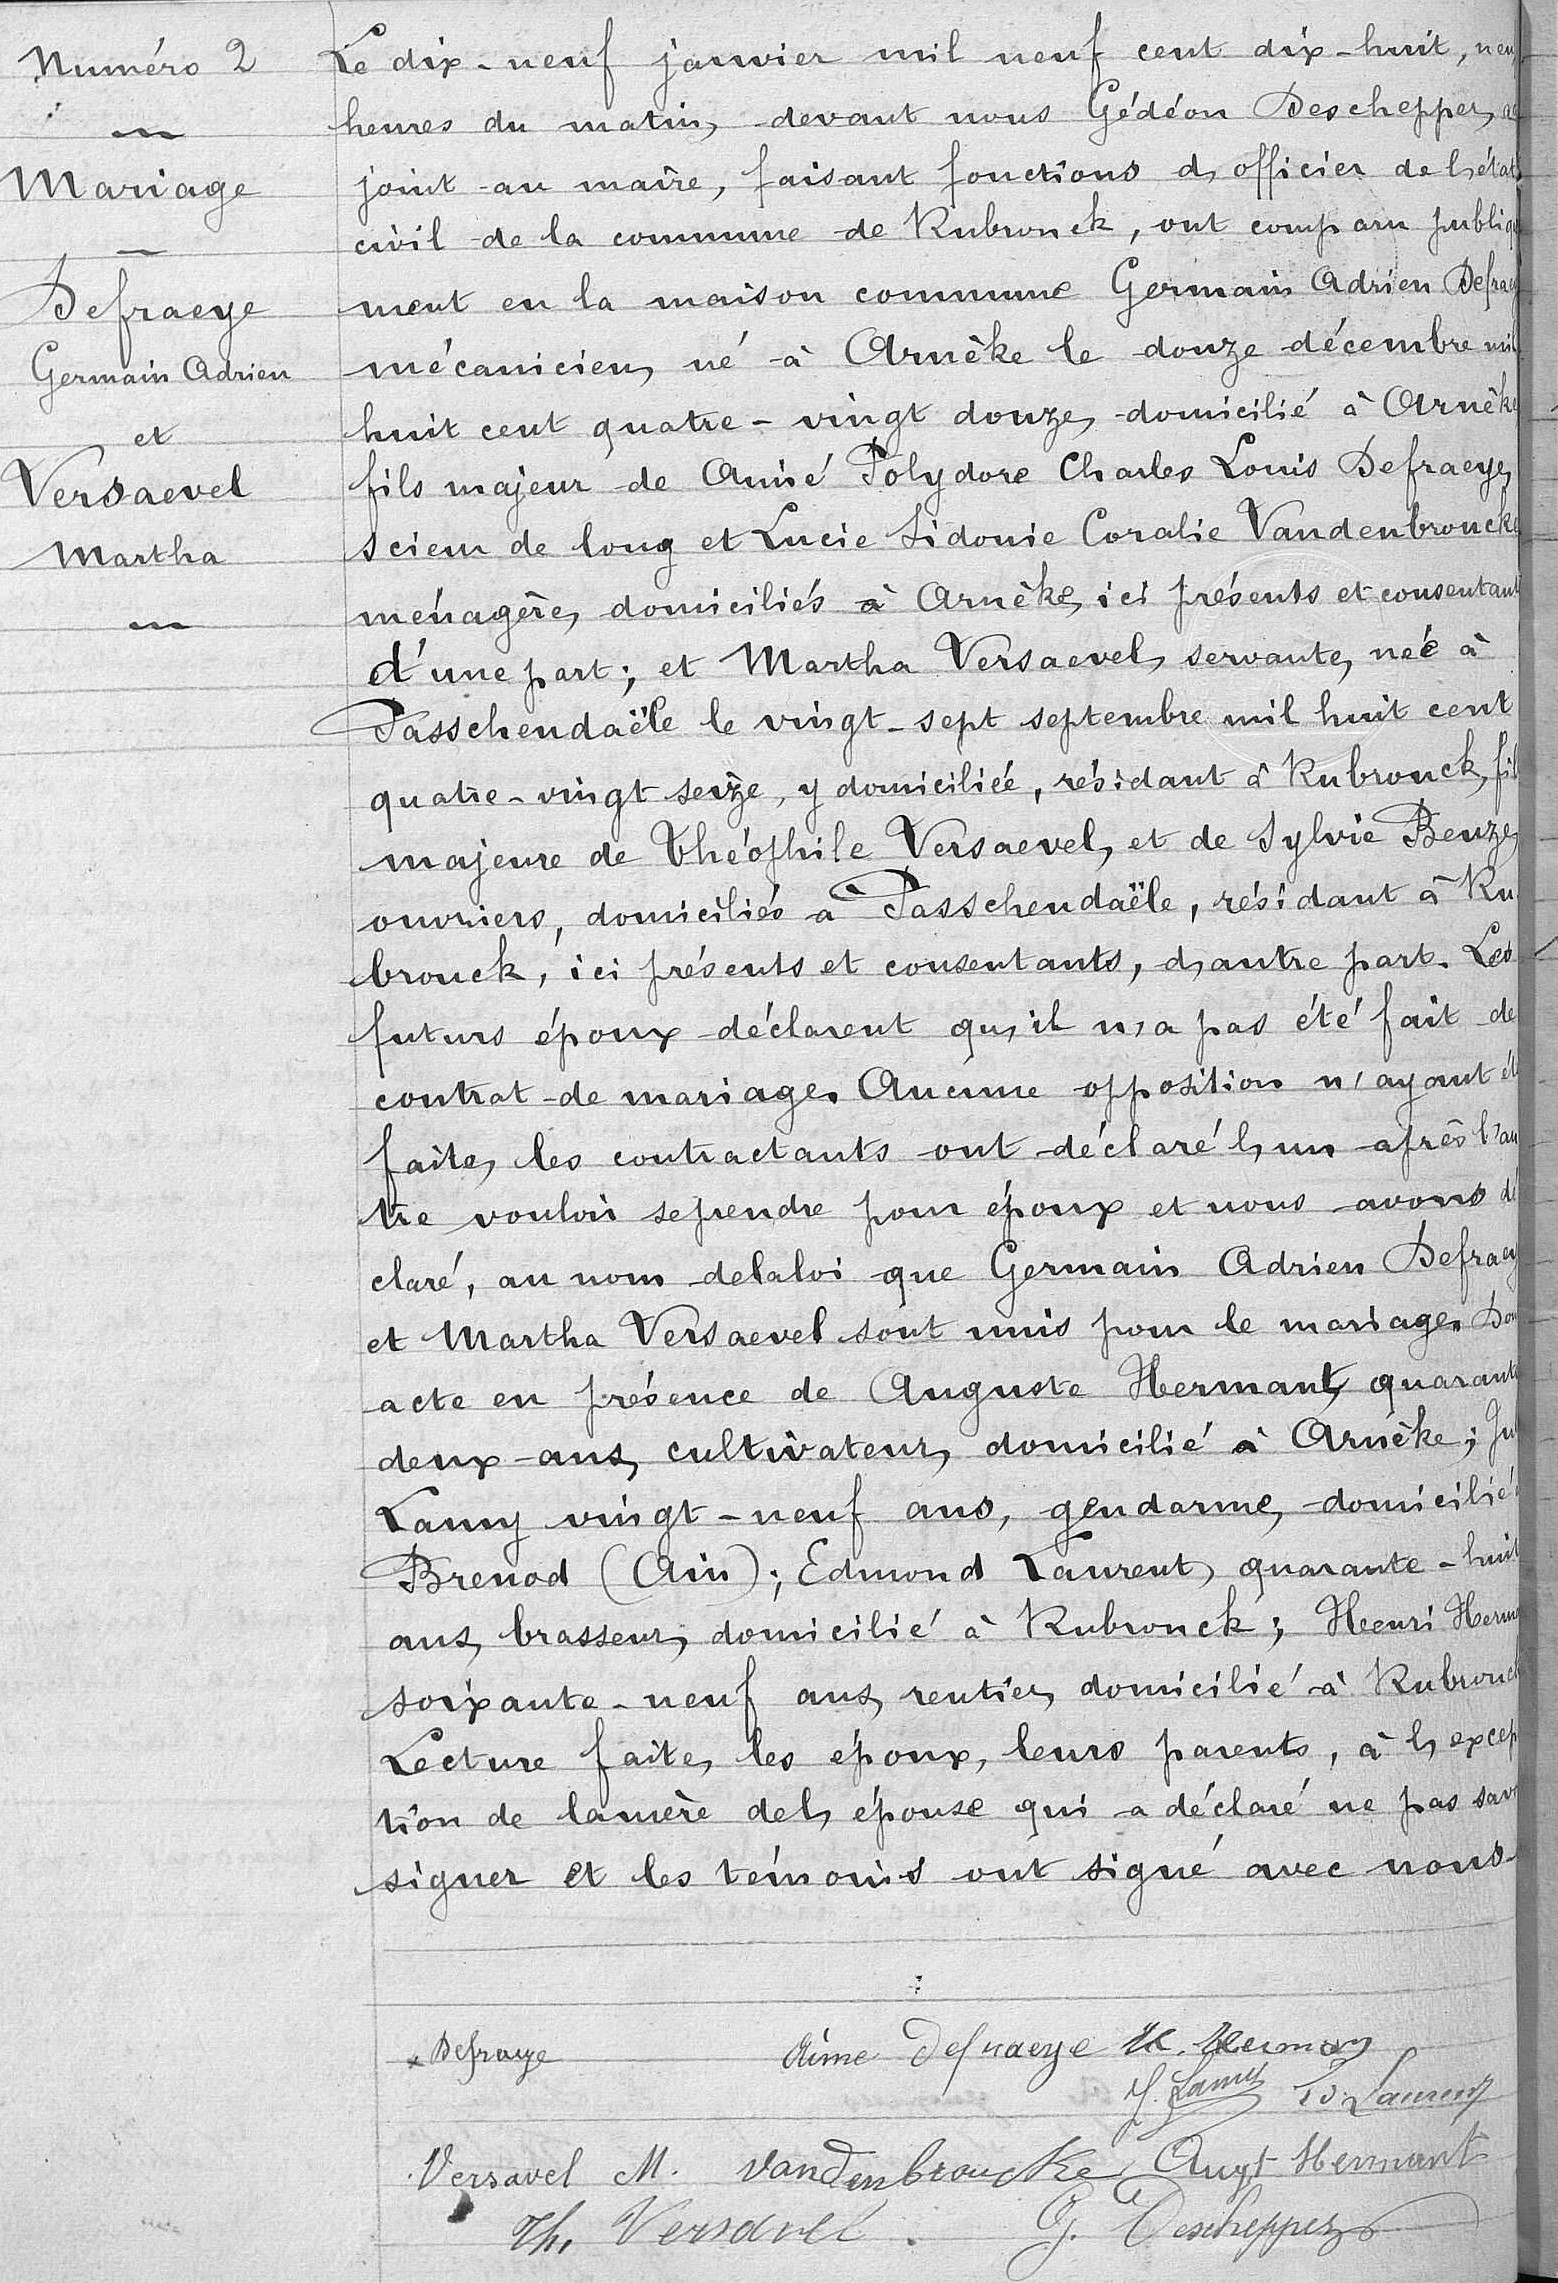 Numéro 2
Mariage
Defraeye
Germain Adrien
et
Versaevel
Martha
Le dix-neuf janvier mil neuf cent dix-huit, neuf
heures du matin, devant nous Gédéon Deschepper, ad
joint au maire, faisant fonctions d'officier de l'état
civil de la commune de Rubrouck, ont comparu publique
ment en la maison commune Germain Adrien Defraey
mécanicien, né à Arnèke le douze décembre mil
huit cent quatre-vingt douze, domicilié à Arnèke
fils majeur de Aimé Polydore Charles Louis Defraeye,
scieur de long et Lucie Sidonie Coralie Vandenbroucke
ménagère, domiciliés à Arnèke, ici présents et consentant
d'une part; et Martha Versaevel, servante, née à
Passchendaële le vingt-sept septembre mil huit cent
quatre-vingt seize, y domiciliée, résidant à Rubrouck, fil
majeure de Théophile Versaevel, et de Sylvie Beuze,
ouvriers, domiciliés à Passchendaële, résidant à Ru
brouck, ici présents et consentants, d'autre part. Les
futurs époux déclarent qu'il n'a pas été fait de
contrat de mariage. Aucune opposition n'ayant ét
faite, les contractants ont déclaré l'un après l'au
tre vouloir se prendre pour époux et nous avons dé
claré, au nom de la loi que Germain Adrien Defraey
et Martha Versaevel sont unis pour le mariage. Don
acte en présence de Auguste Hermant, quarante
deux ans, cultivateur, domicilié à Arnèke; Jul
Lamy vingt-neuf ans, gendarme, domicilié à
Brenod (Ain); Edmond Laurent, quarante-huit
ans, brasseur, domicilié à Rubrouck; Henri Herma
soixante-neuf ans, rentier, domicilié à Rubrouck
Lecture faite, les époux, leurs parents, à l'excep
tion de la mère de l'épouse qui a déclaré ne pas savo
signer et les témoins ont signé avec nous.
Defraeye Aimé Defraeye H. Herman
J. Lamy Ed. Laurent
Versavel M. Vandenbroucke Augt Hermant
Th. Versavel. G. Deschepper